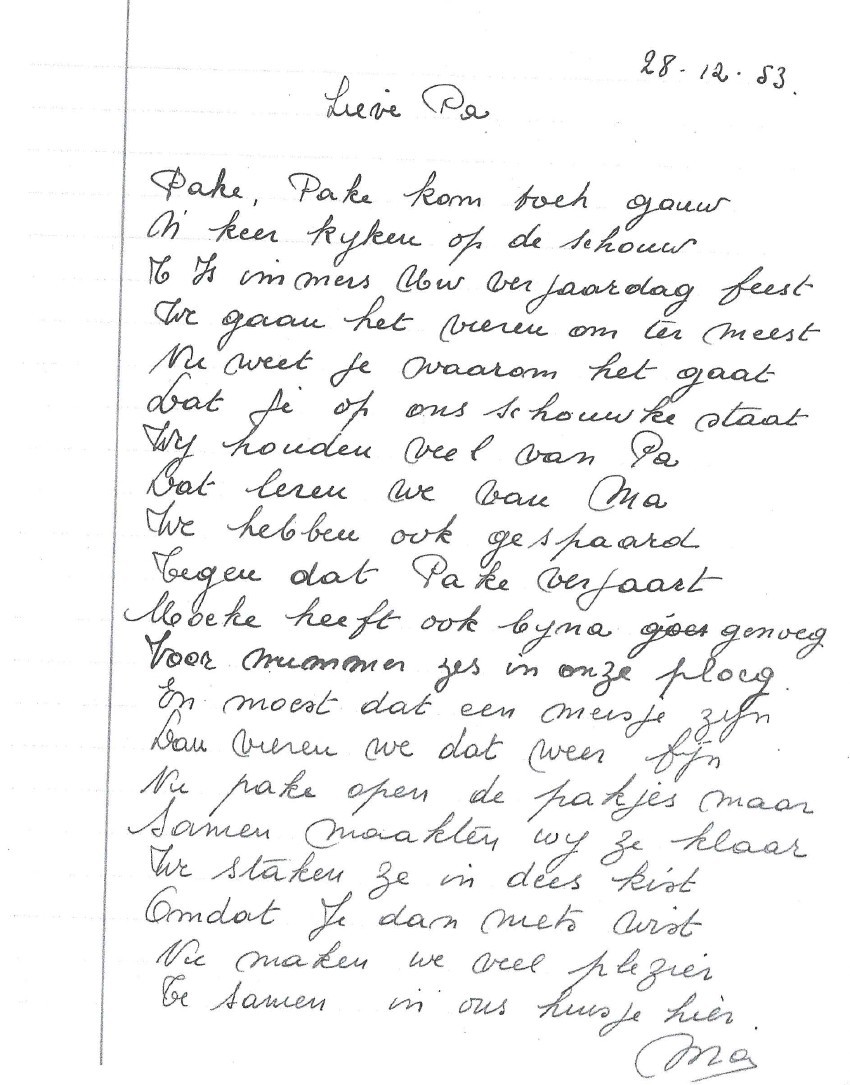 28-12-53.
Lieve Pa
Pake, Pake kom toch gauw
N keer kyken op de schouw
T Is immers Uw verjaardag feest
We gaan het vieren om ter meest
Nu weet je waarom het gaat
Dat je op ons schouwke staat
Wy houden veel van Pa
Dat leren we van Ma
We hebben ook gespaard
Tegen dat Pake verjaart
Moeke heeft ook byna goes genoeg
Voor nummer zes in onze ploeg
En moest dat een meisje zijn
Dan vieren we dat weer fijn
Nu pake open de pakjes maar
Samen maakten wy ze klaar
We staken ze in dees kist
Omdat Je dan niets wist
Nu maken we veel plezier
Te samen in ons huisje hier.
Ma